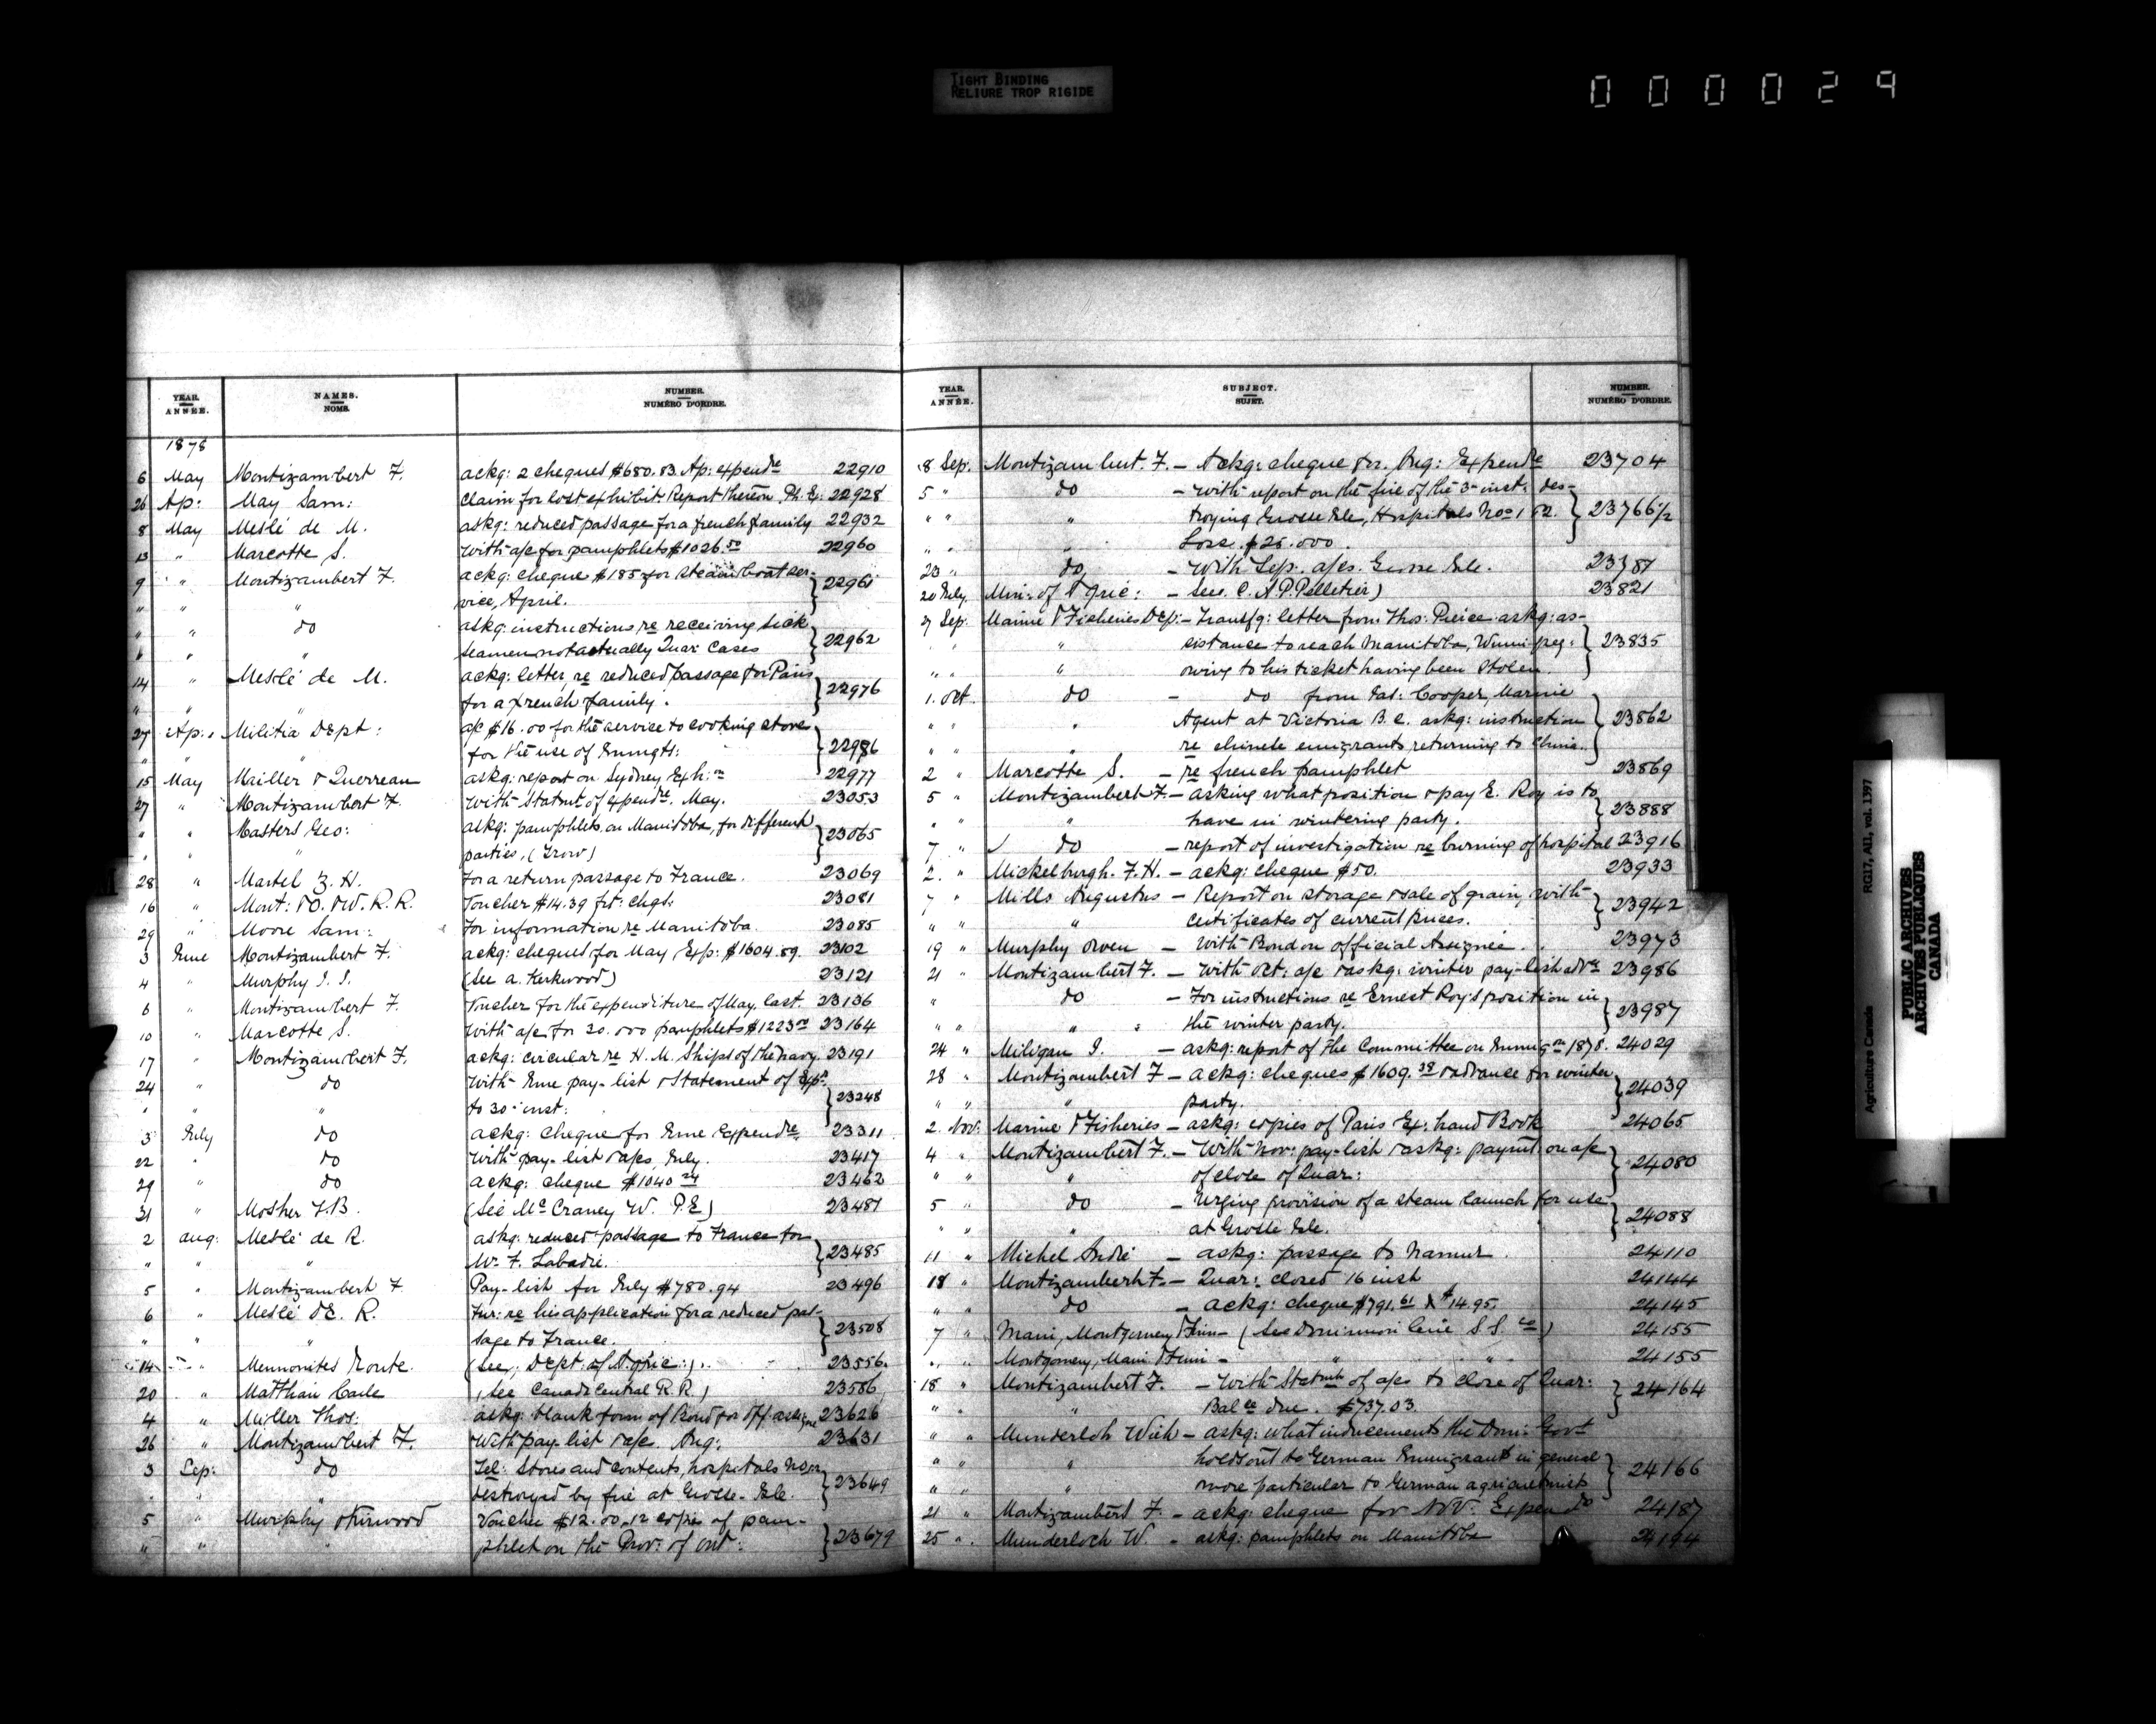 TIGHT BINDING
RELIURE TROP RIGIDE
000029
YEAR. ANNÉE.
NAMES. NOMS.
NUMBER. NUMÉRO D'ORDRE.
1878
6 May Montizambert F. ackg: 2 cheques $680.83. Ap: expendre 22910
26 Ap: May Sam: Claim for lost exhibit. Report thereon Ph. Ex: 22928
8 May Meslé de M. askg: reduced passage for a french family 22932
13 " Marcotte S. With a/c for pamphlets $1026.50 22960
9 " Montizambert F. ackg: cheque $185 for steamboat ser-
" " " vice, April. 22961
" " do askg: instructions re receiving sick
" " " seamen not actually Quar: Cases 22962
14 " Meslé de M. ackg: letter, re reduced passage for Paris
" " " for a french family. 22976
27 Ap: Militia Dept: a/c $16.00 for the service to cooking stoves
" " for the use of Immgts: 22986
15 May Mailler & Querreau askg: report on Sydney Exh:on 22977
27 " Montizambert F. With Statmt of expendre. May. 23053
" " Masters Geo: askg: pamphlets on Manitoba, for different
" " " parties, (Trow) 23065
28 " Martel Z. H. For a return passage to France. 23069
16 " Mont: & O. & W. R. R. Voucher $14.39 frt: chgs: 23081
29 " Moore Sam: For information re Manitoba. 23085
3 June Montizambert F. ackg: cheques for May Exp: $1604.89. 23102
4 " Murphy J. J. (See A. Kirkwood) 23121
6 " Montizambert F. Voucher for the expenditure of May last. 23136
10 " Marcotte S. With a/c for 30.000 pamphlets $1223.00 23164
17 " Montizambert F. ackg: circular re H. M. Ships of the navy. 23191
24 " do With June pay-list & Statement of Exp:
" " " to 30 inst: 23248
3 July do ackg: cheque for June Expendre. 23311
22 " do With pay-list & a/cs, July. 23417
29 " do ackg: cheque $1040 23462
31 " Mosher J.B. (See McCraney W. P.E) 23487
2 aug: Meslé de R. askg: reduced passage to France for
" " " Wm F. Labadie. 23485
5 " Montizambert F Pay-list for July $780.94 23496
6 " Meslé DE. R. Fur: re his application for a reduced pas-
" " " sage to France. 23508
14 " Mennonites Route. (see, Dept. of Agric:). 23556.
20 " Matthau Carle (see Canada Central R.R) 23586
4 " Miller Thos: askg: blank form of Bond for Off: assignee 23626
26 " Montizambert F. With pay-list & a/cs. Aug: 23631
3 Sep: do Tel: Stores and contents, hospitals
" " " destroyed by fire at Grosse-Isle. 23649
5 " Murphy & Kirwood Voucher $12.00_12 copies of pam-
" " " phlet on the Prov: of Ont: 23679
YEAR. ANNÉE.
SUBJECT. SUJET.
NUMBER. NUMÉRO D'ORDRE.
8 Sep. Montizambert. F. – Ackg: cheque for. Aug: Expendre 23704
5 " do – With report on the fire of the 3rd inst: des-
" " " troying Grosse Isle, Hospitals Nos 1 & 2. 23766½
" " " Loss. $25.000.
23 " do – With Sep. a/cs. Grosse Isle. 23787
20 July. Min: of Agric: – See. C. A P. Pelletier) 23821
27 Sep. Marine & Fisheries Dep: – Transfg: letter from Thos: Pierce askg: as-
" " " sistance to reach Manitoba, Winnipeg: 23835
" " " owing to his ticket having been stolen.
1. Oct. do – do from Jas: Cooper, Marine
" " " Agent at Victoria B. C. askg: instruction 23862
" " " re chinese emigrants returning to China.
2 " Marcotte S. – re french pamphlet 23869
5 " Montizambert F. – asking what position & pay E. Roy is to
" " " have in wintering party. 23888
7 " do – report of investigation re burning of hospital 23916
2. " Mickelburgh. F. H. – ackg: cheque $50. 23933
7 " Mills Augustus – Report on storage & sale of grain, with
" " " certificates of current prices. 23942
19 " Murphy Owen – With Bond on official Assignee. 23973
21 " Montizambert F. – With Oct: a/c & askg: winter pay-list advce 23986
" do – For instructions re Ernest Roy's position in
" " " the winter party. 23987
24 " Miligan J. – askg: report of the Committee on Immigon 1878. 24029
28 " Montizambert F – ackg: cheques $1609.38 & advance for winter
" " " party. 24039
2. Nov: Marine & Fisheries – askg: copies of Paris Ex: hand Book 24065
4 " Montizambert F. – With Nov: pay-list & askg: paymt on a/c
" " " of close of Quar: 24080
5 " do – Urging provision of a steam launch for use
" " " at Grosse Isle. 24088
11 " Michel André – askg: passage to Namur. 24110
18 " Montizambert F. – Quar: closed 16 inst 24144
" " do – ackg: cheque $791.61 & $14.95. 24145
7 " Main, Montgomery & Finn – (See Dominion Line S. S. Co) 24155
" " Montgomery, Main & Finn – " " 24155
18 " Montizambert F. – With Statmt of a/cs to close of Quar:
" " " Balce due. $737.03. 24164
" " Munderloh Wish – askg: what inducements the Dom: Govt
" " " holds out to German Immigrants in general
" " " more particular to German agriculturists 24166
21 " Montizambert F. – ackg: cheque for NOV: Expend 24187
25 " Munderloch W. – askg: pamphlets on Manitoba 24194
Agriculture Canada RG17, AII, vol. 1397
PUBLIC ARCHIVES
ARCHIVES PUBLIQUES
CANADA